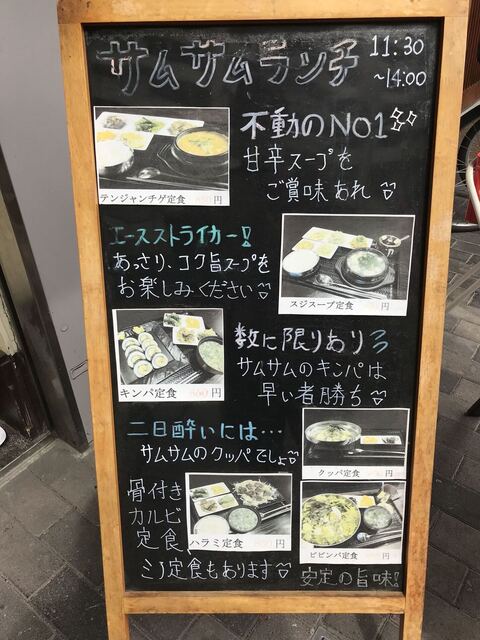 サムサムランチ
11:30
~14:00
不動のNO1
甘辛スープを
ご賞味あれ
テンジャンチゲ定食 円
エースストライカー!
あっさり、コク旨スープを
お楽しみください
スジスープ定食 円
数に限りあり
サムサムのキンパは
早い者勝ち
キンパ定食 円
二日酔いには…
サムサムのクッパでしょ
クッパ定食 円
骨付き
カルビ
定食、
ミノ定食もあります
ハラミ定食 円
ビビンバ定食 円
安定の旨味!